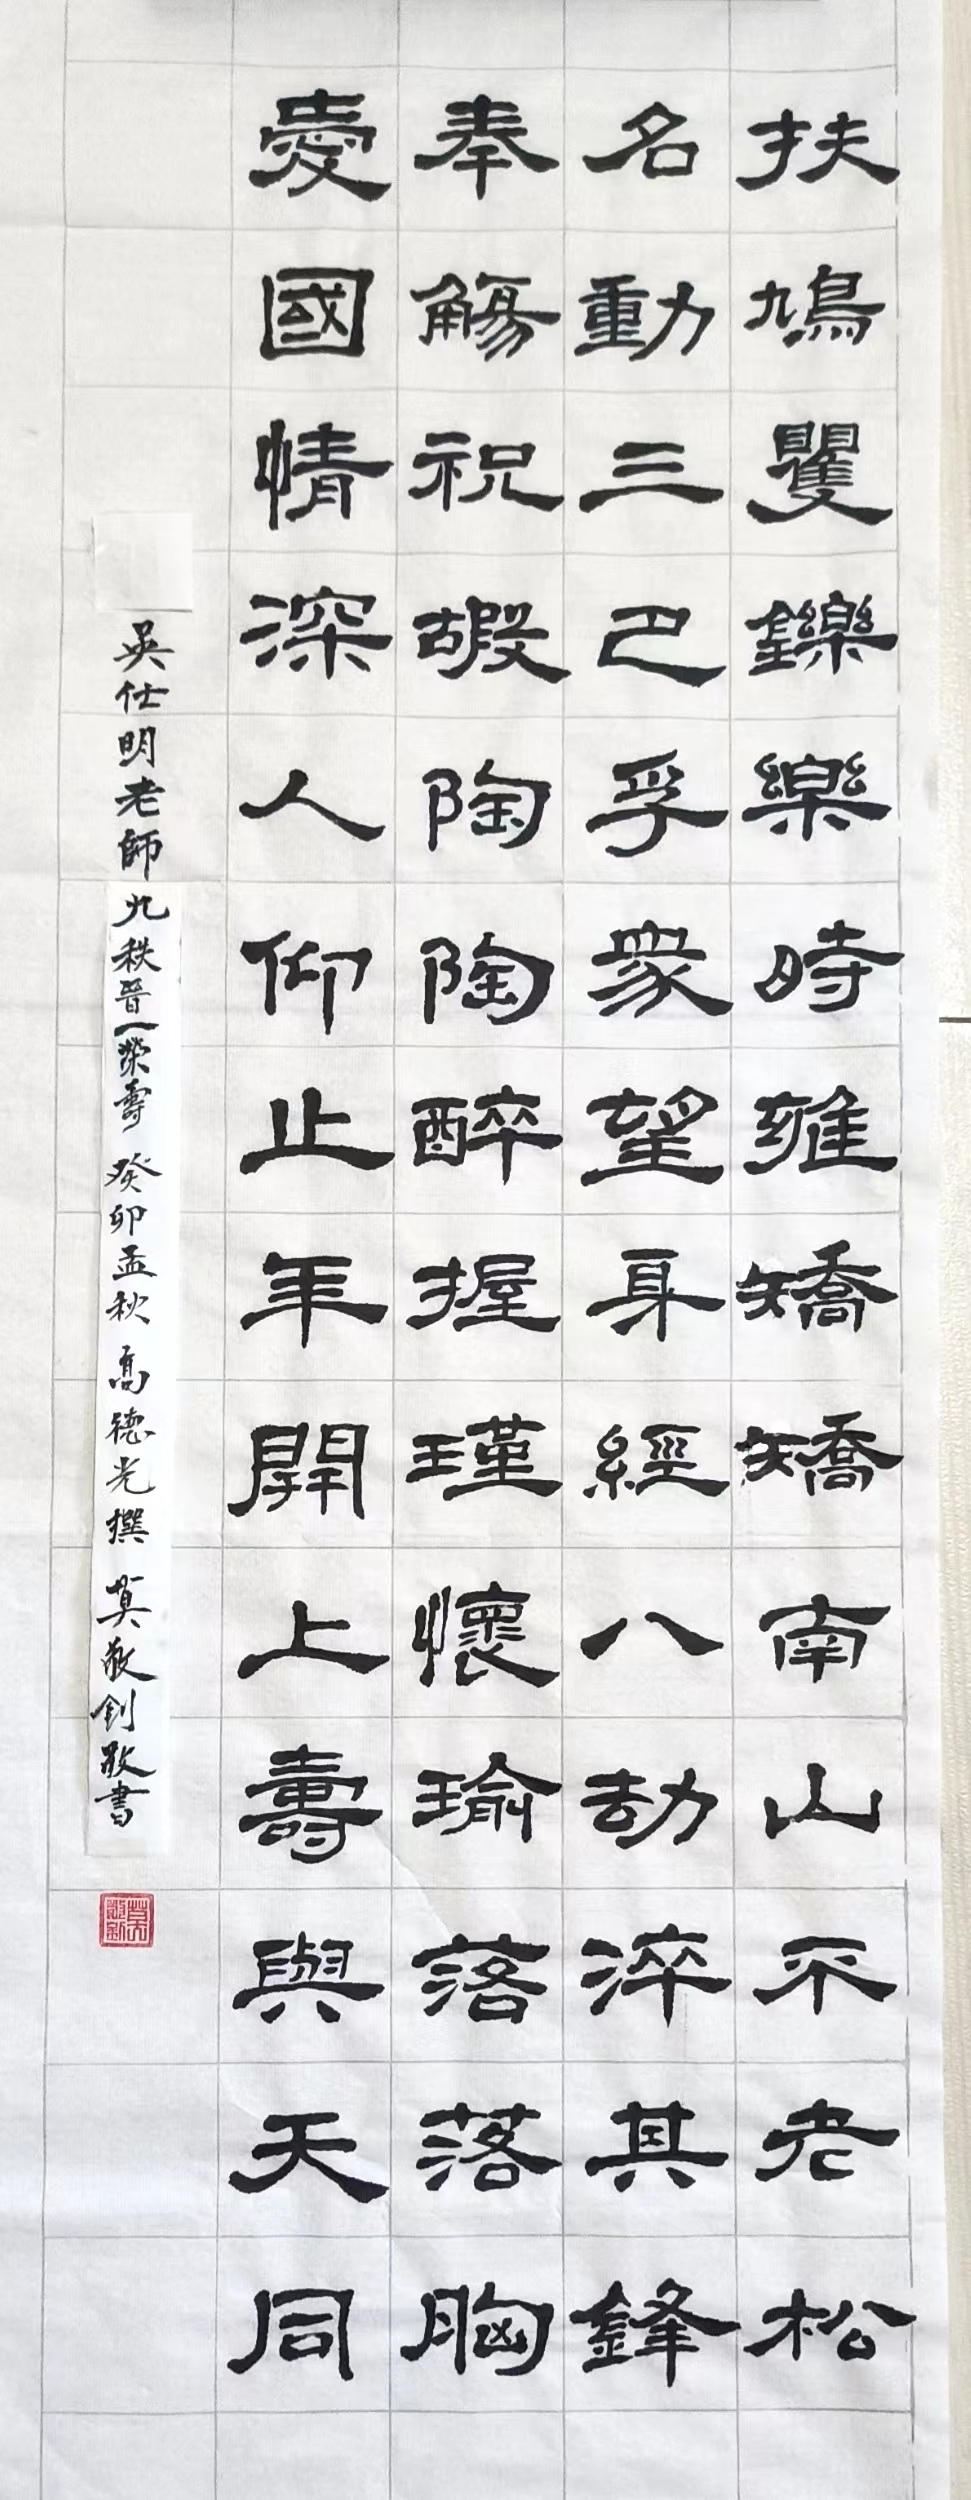 扶鳩矍鑠樂時雍矯矯南山不老松
名動三巴孚眾望身經八劫淬其鋒
奉觴祝嘏陶陶醉握瑾懷瑜落落胸
愛國情深人仰止年開上壽與天同
吳仕明老師九秩晉一榮壽 癸卯孟秋 高德光撰 莫敬釗敬書